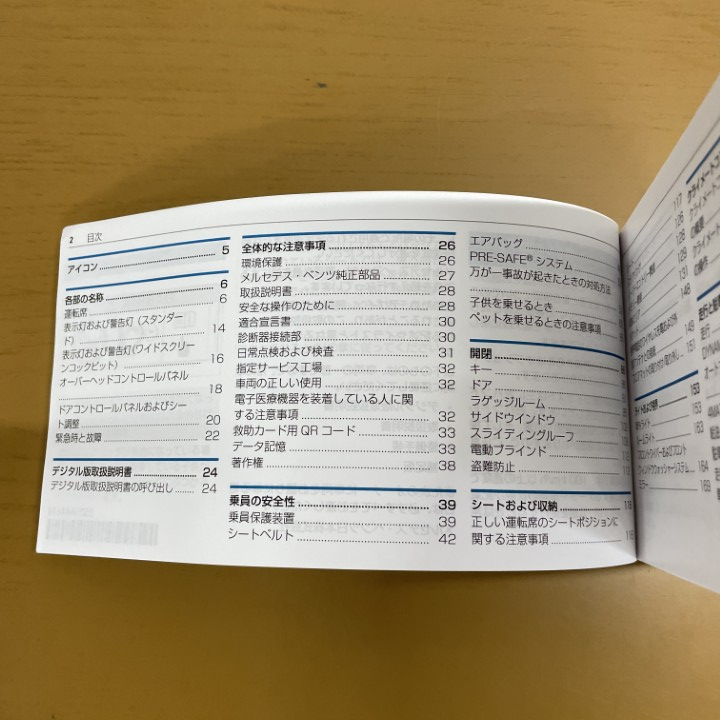 2 目次
アイコン 5
各部の名称 6
運転席 6
表示灯および警告灯 (スタンダー
ド) 14
表示灯および警告灯(ワイドスクリー
ンコックピット) 16
オーバーヘッドコントロールパネル
18
ドアコントロールパネルおよびシー
ト調整 20
緊急時と故障 22
デジタル版取扱説明書 24
デジタル版取扱説明書の呼び出し 24
全体的な注意事項 26
環境保護 26
メルセデス・ベンツ純正部品 27
取扱説明書 28
安全な操作のために 28
適合宣言書 30
診断器接続部 30
日常点検および検査 31
指定サービス工場 32
車両の正しい使用 32
電子医療機器を装着している人に関
する注意事項 32
救助カード用 QR コード 33
データ記憶 33
著作権 38
乗員の安全性 39
乗員保護装置 39
シートベルト 42
エアバッグ
PRE-SAFE® システム
万が一事故が起きたときの対処方法
子供を乗せるとき
ペットを乗せるときの注意事項
開閉
キー
ドア
ラゲッジルーム
サイドウインドウ
スライディングルーフ
電動ブラインド
盗難防止
シートおよび収納
正しい運転席のシートポジションに
関する注意事項
117
126
128
129
148
131
153
153
163
164
169
ミラー